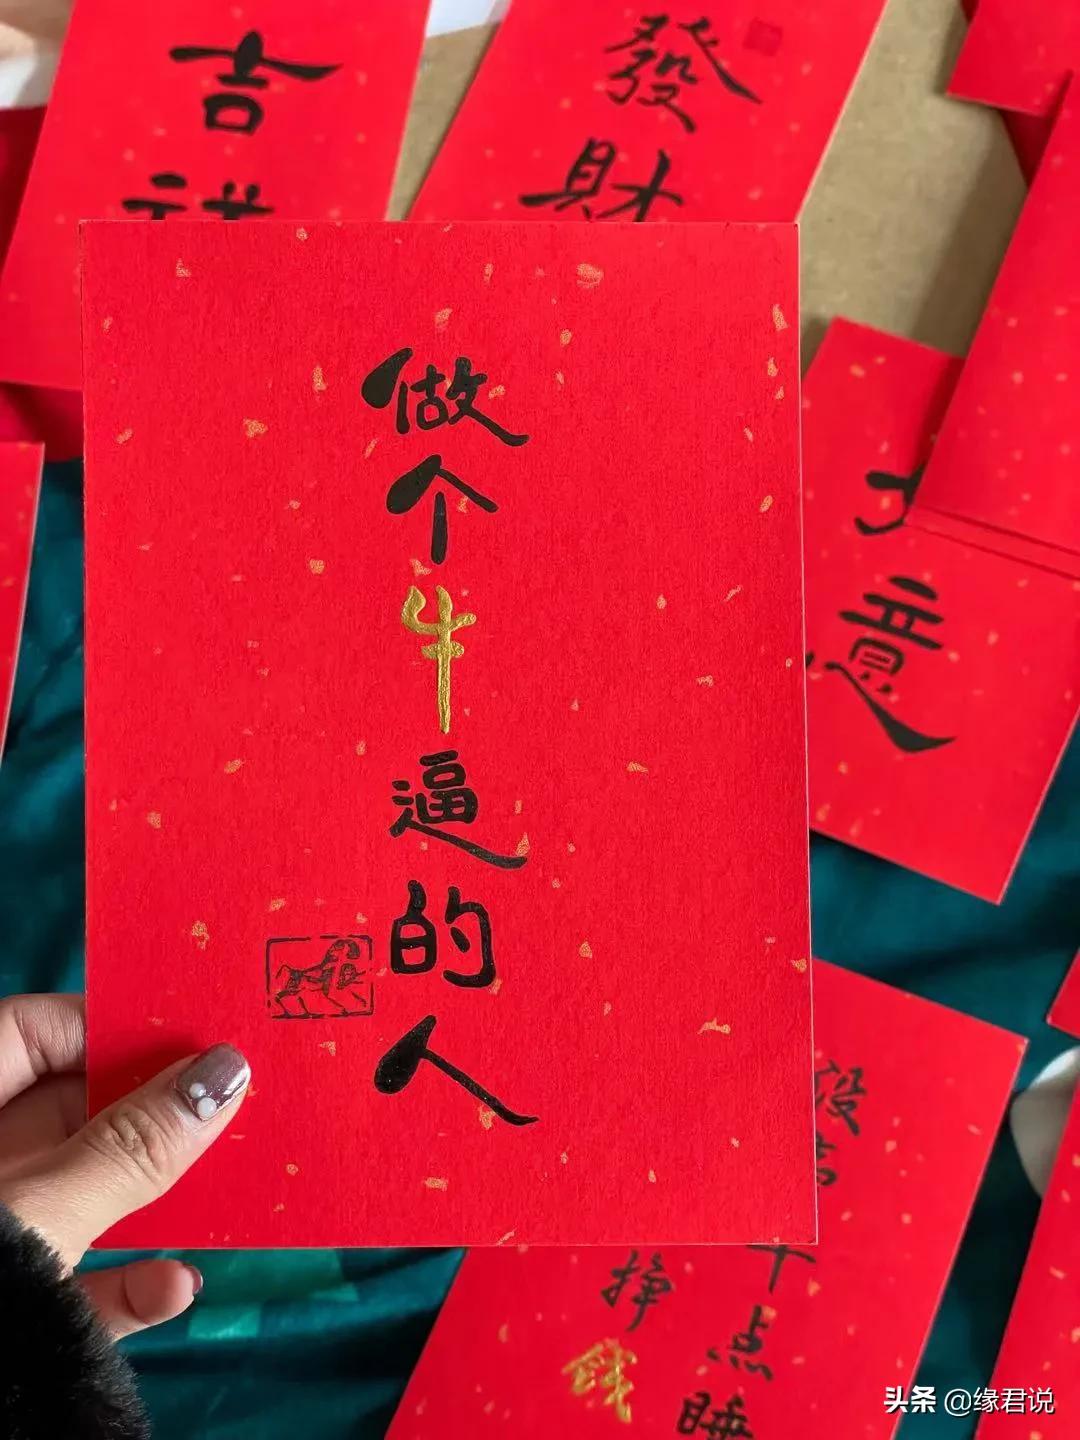 吉祥
發財
做个牛逼的人
意
挣钱
点睡
头条 @缘君说